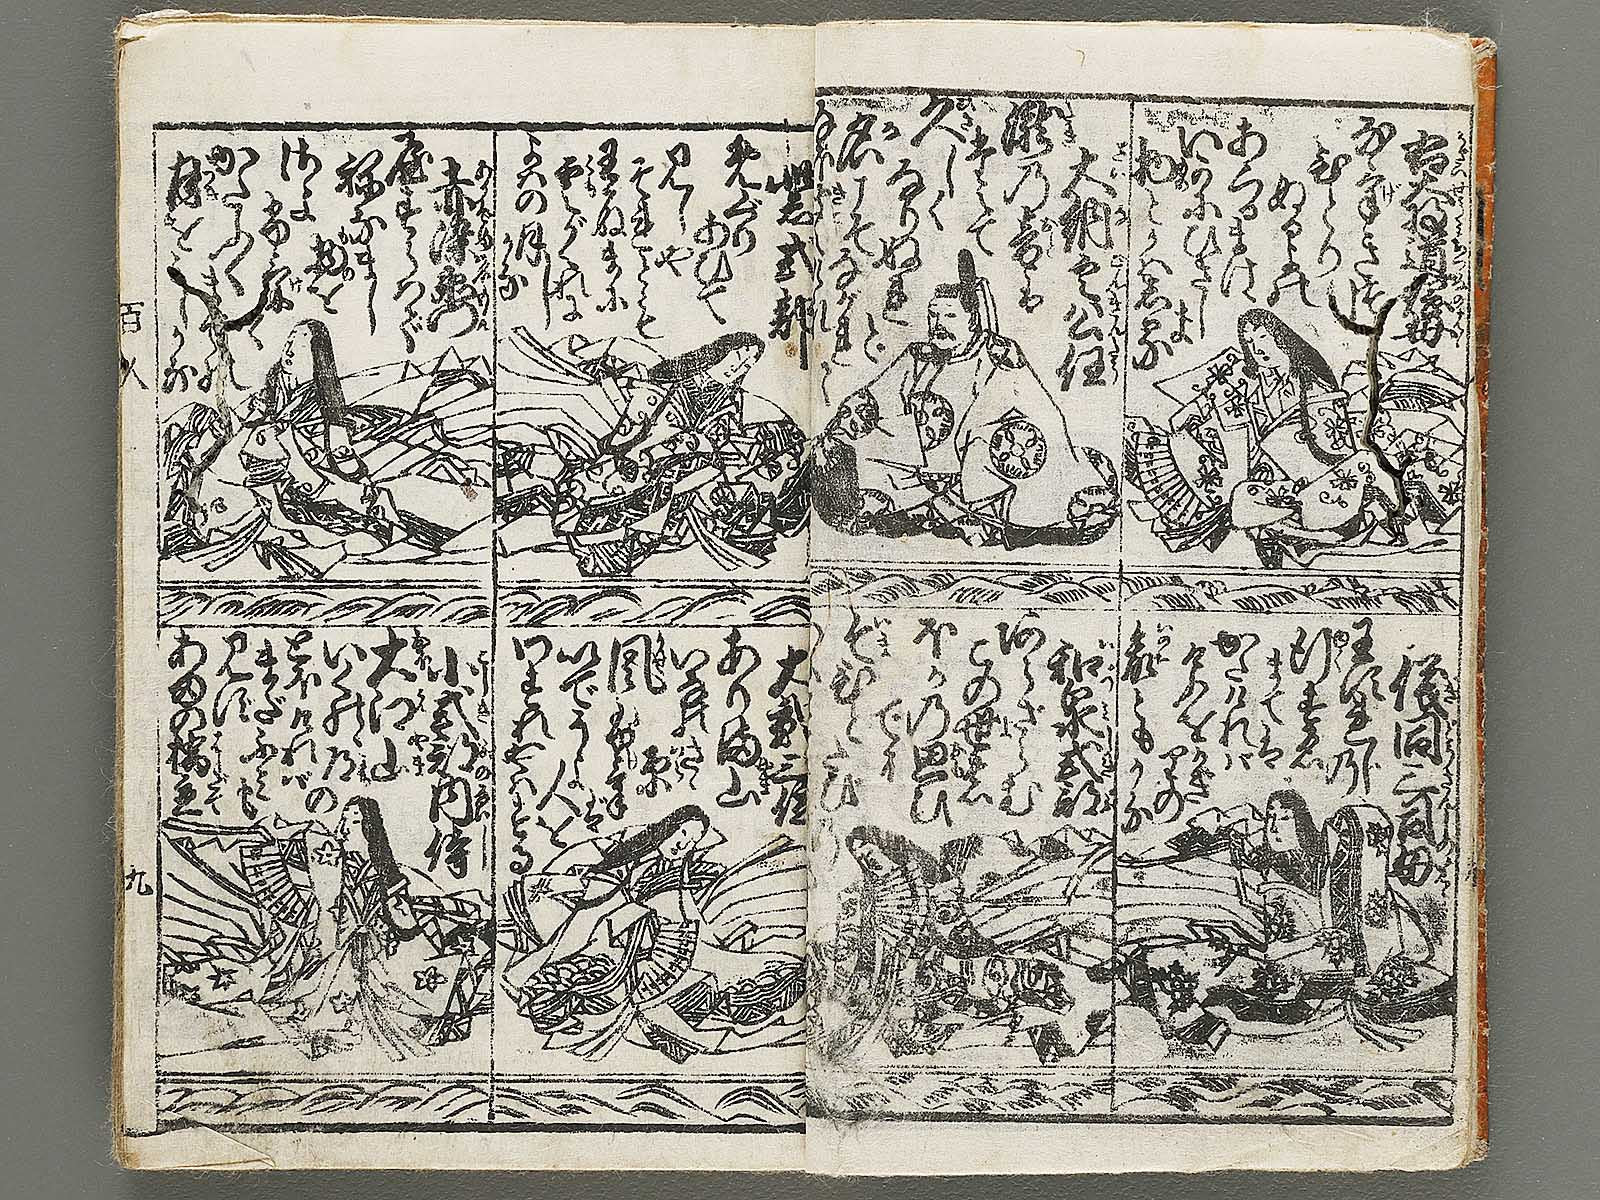 右大将道綱母
なげきつゝ
ひとり
ぬる夜の
あくるまは
いかにひさしき
物とかはしる
大納言公任
瀧の音は
たえて
久しく
なりぬれど
名こそながれて
儀同三司母
わすれじの
行すゑ
まては
かたければ
けふをかぎりの
命ともがな
和泉式部
あらざらむ
この世の
ほかの思ひ
でに
紫式部
めぐり
あひて
見しや
それとも
わかぬまに
雲がくれにし
夜半の月
かな
赤染衛門
やすらはで
ねなまし
物を
さよ
ふけて
かたぶく
までの
月を
見しかな
大弐三位
ありま山
いなのさゝ原
風ふけば
いでそよ人を
わすれやはする
小式部内侍
大江山
いくのゝ道の
とほければ
まだふみも
見ず
あまの橋立
百人
九